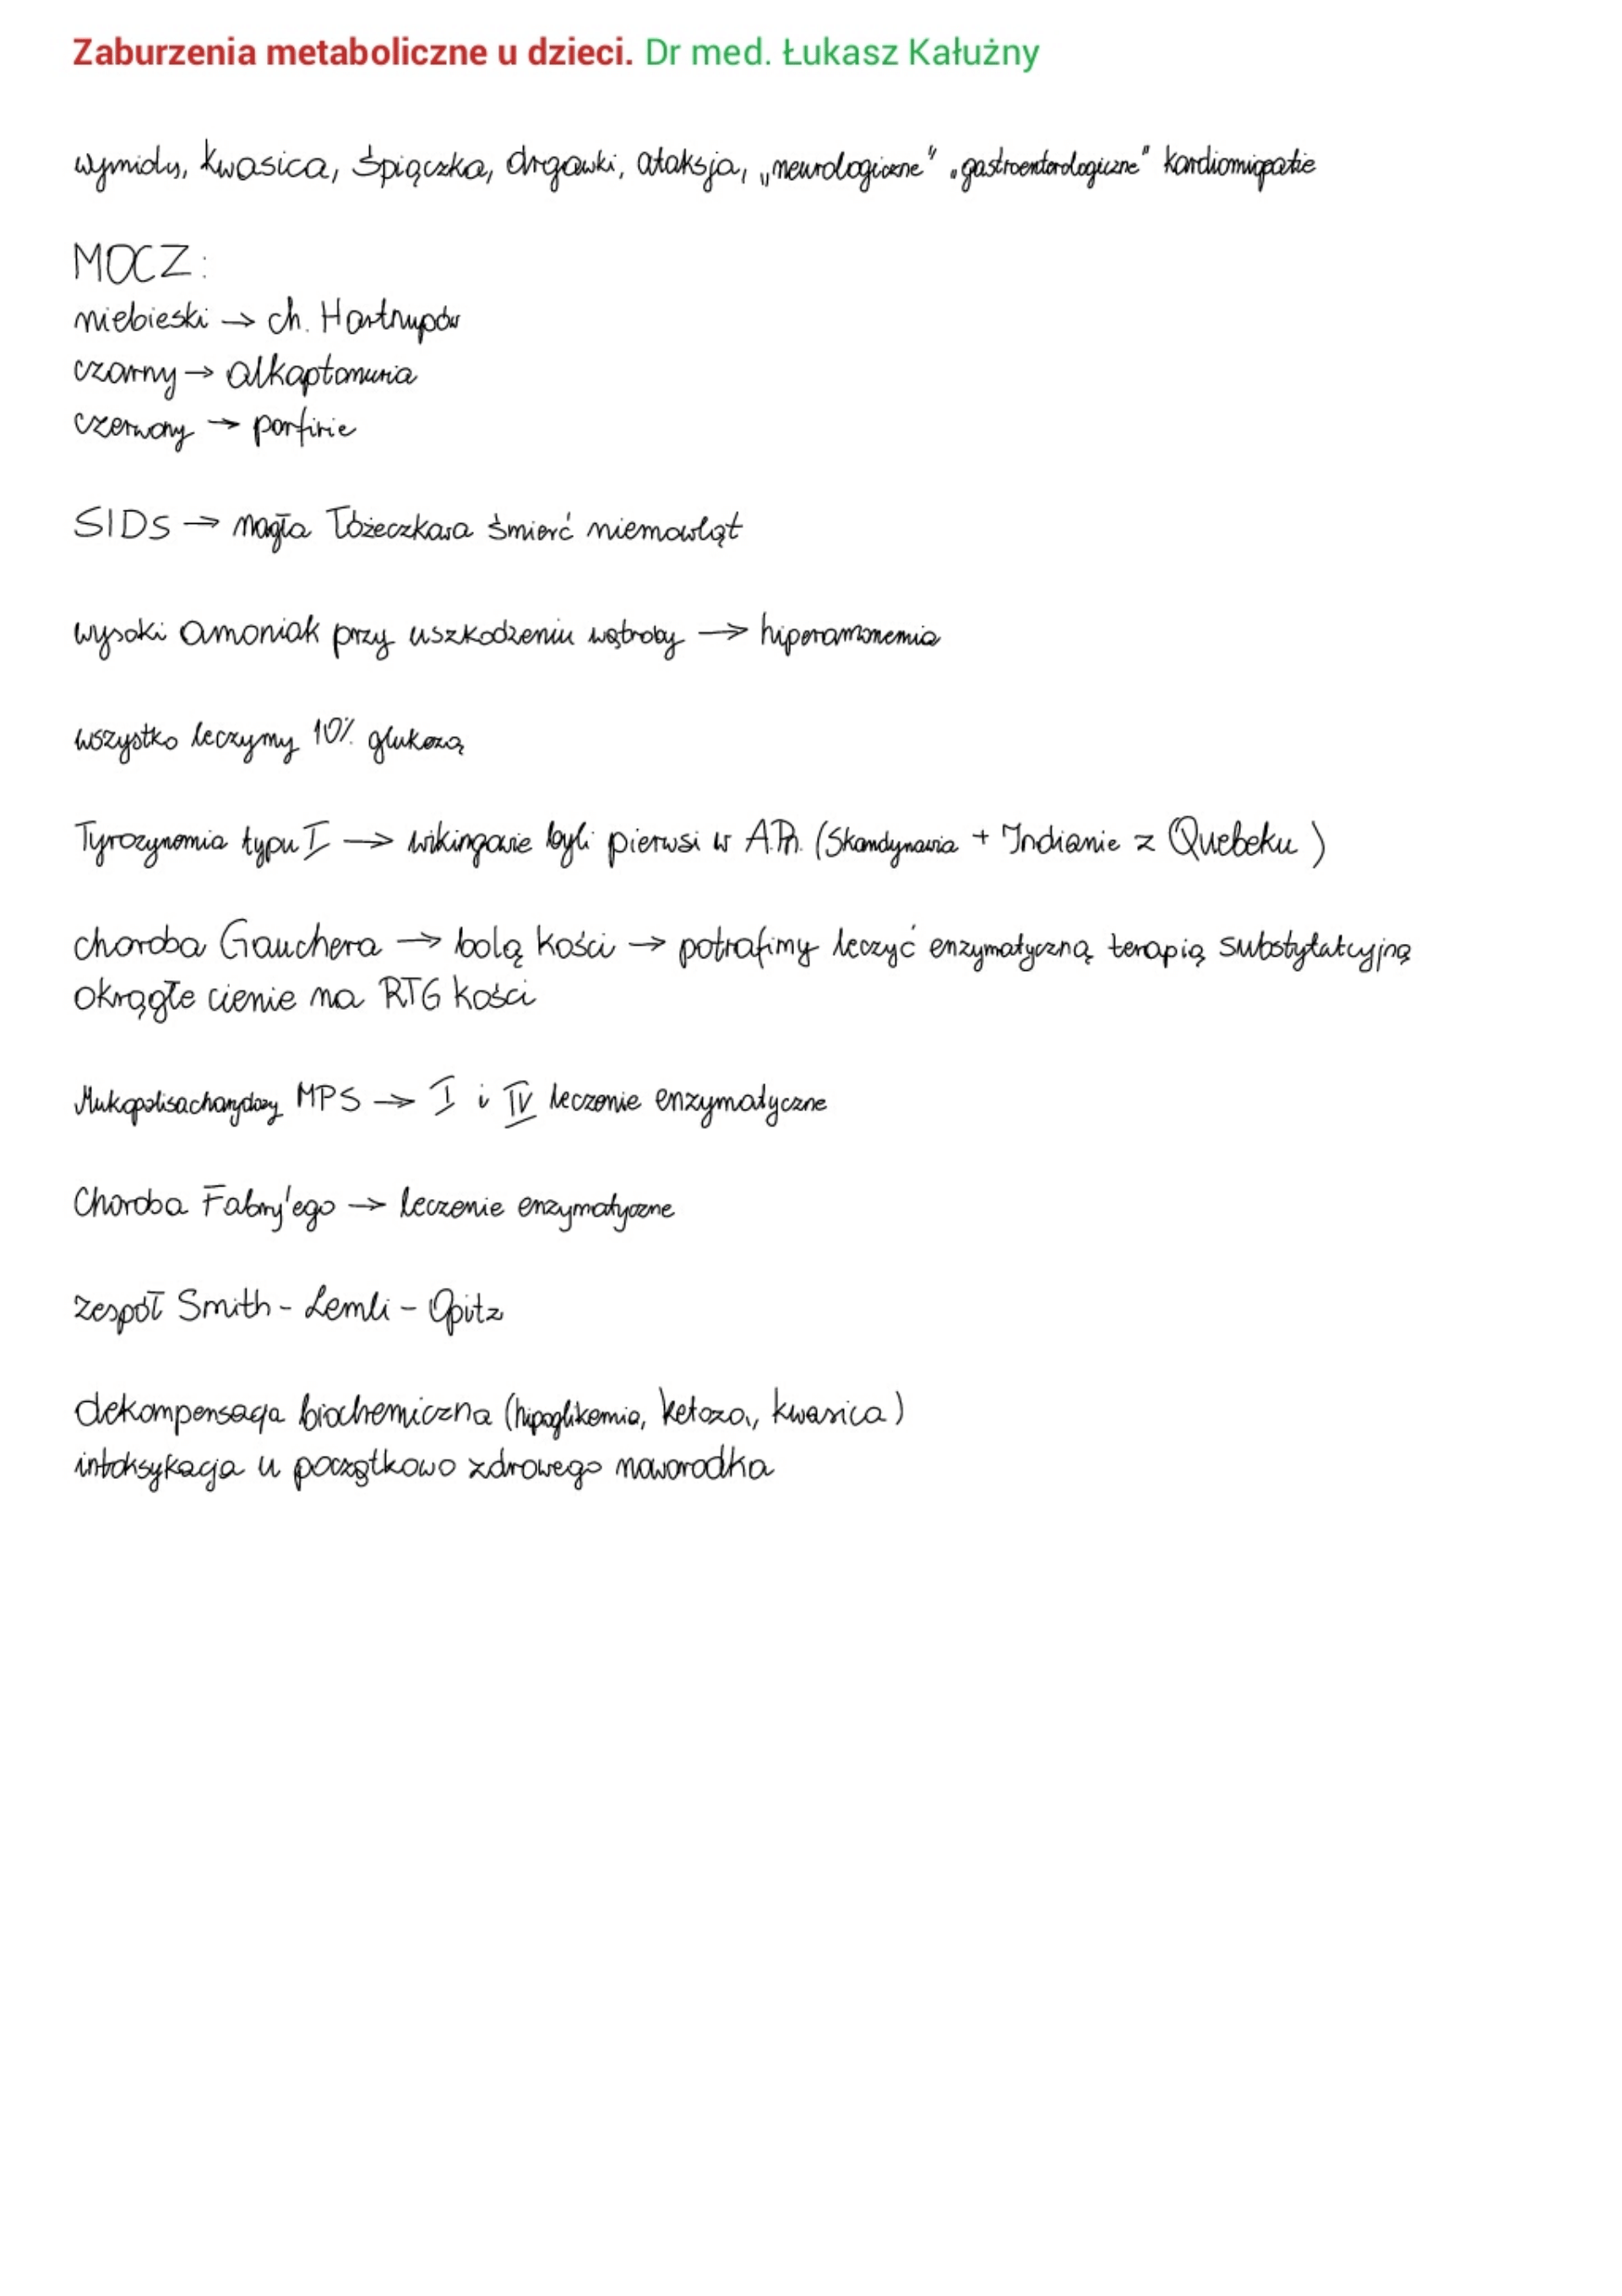 Zaburzenia metaboliczne u dzieci. Dr med. Łukasz Kałużny
wymioty, kwasica, śpiączka, drgawki, ataksja, „neurologiczne" „gastroenterologiczne" kardiomiopatie
MOCZ:
niebieski → ch. Hartnupów
czarny → alkaptonuria
czerwony → porfirie
SIDS → nagła łóżeczkowa śmierć niemowląt
wysoki amoniak przy uszkodzeniu wątroby → hiperamonemia
wszystko leczymy 10% glukozą
Tyrozynemia typu I → wikingowie byli pierwsi w A.Pn. (Skandynawia + Indianie z Quebeku)
choroba Gauchera → bolą kości → potrafimy leczyć enzymatyczną terapią substytutcyjną
okrągłe cienie na RTG kości
Mukopolisacharydozy MPS → I i IV leczenie enzymatyczne
Choroba Fabry'ego → leczenie enzymatyczne
zespół Smith - Lemli - Opitz
dekompensacja biochemiczna (hipoglikemia, ketoza, kwasica)
intoksykacja u początkowo zdrowego noworodka